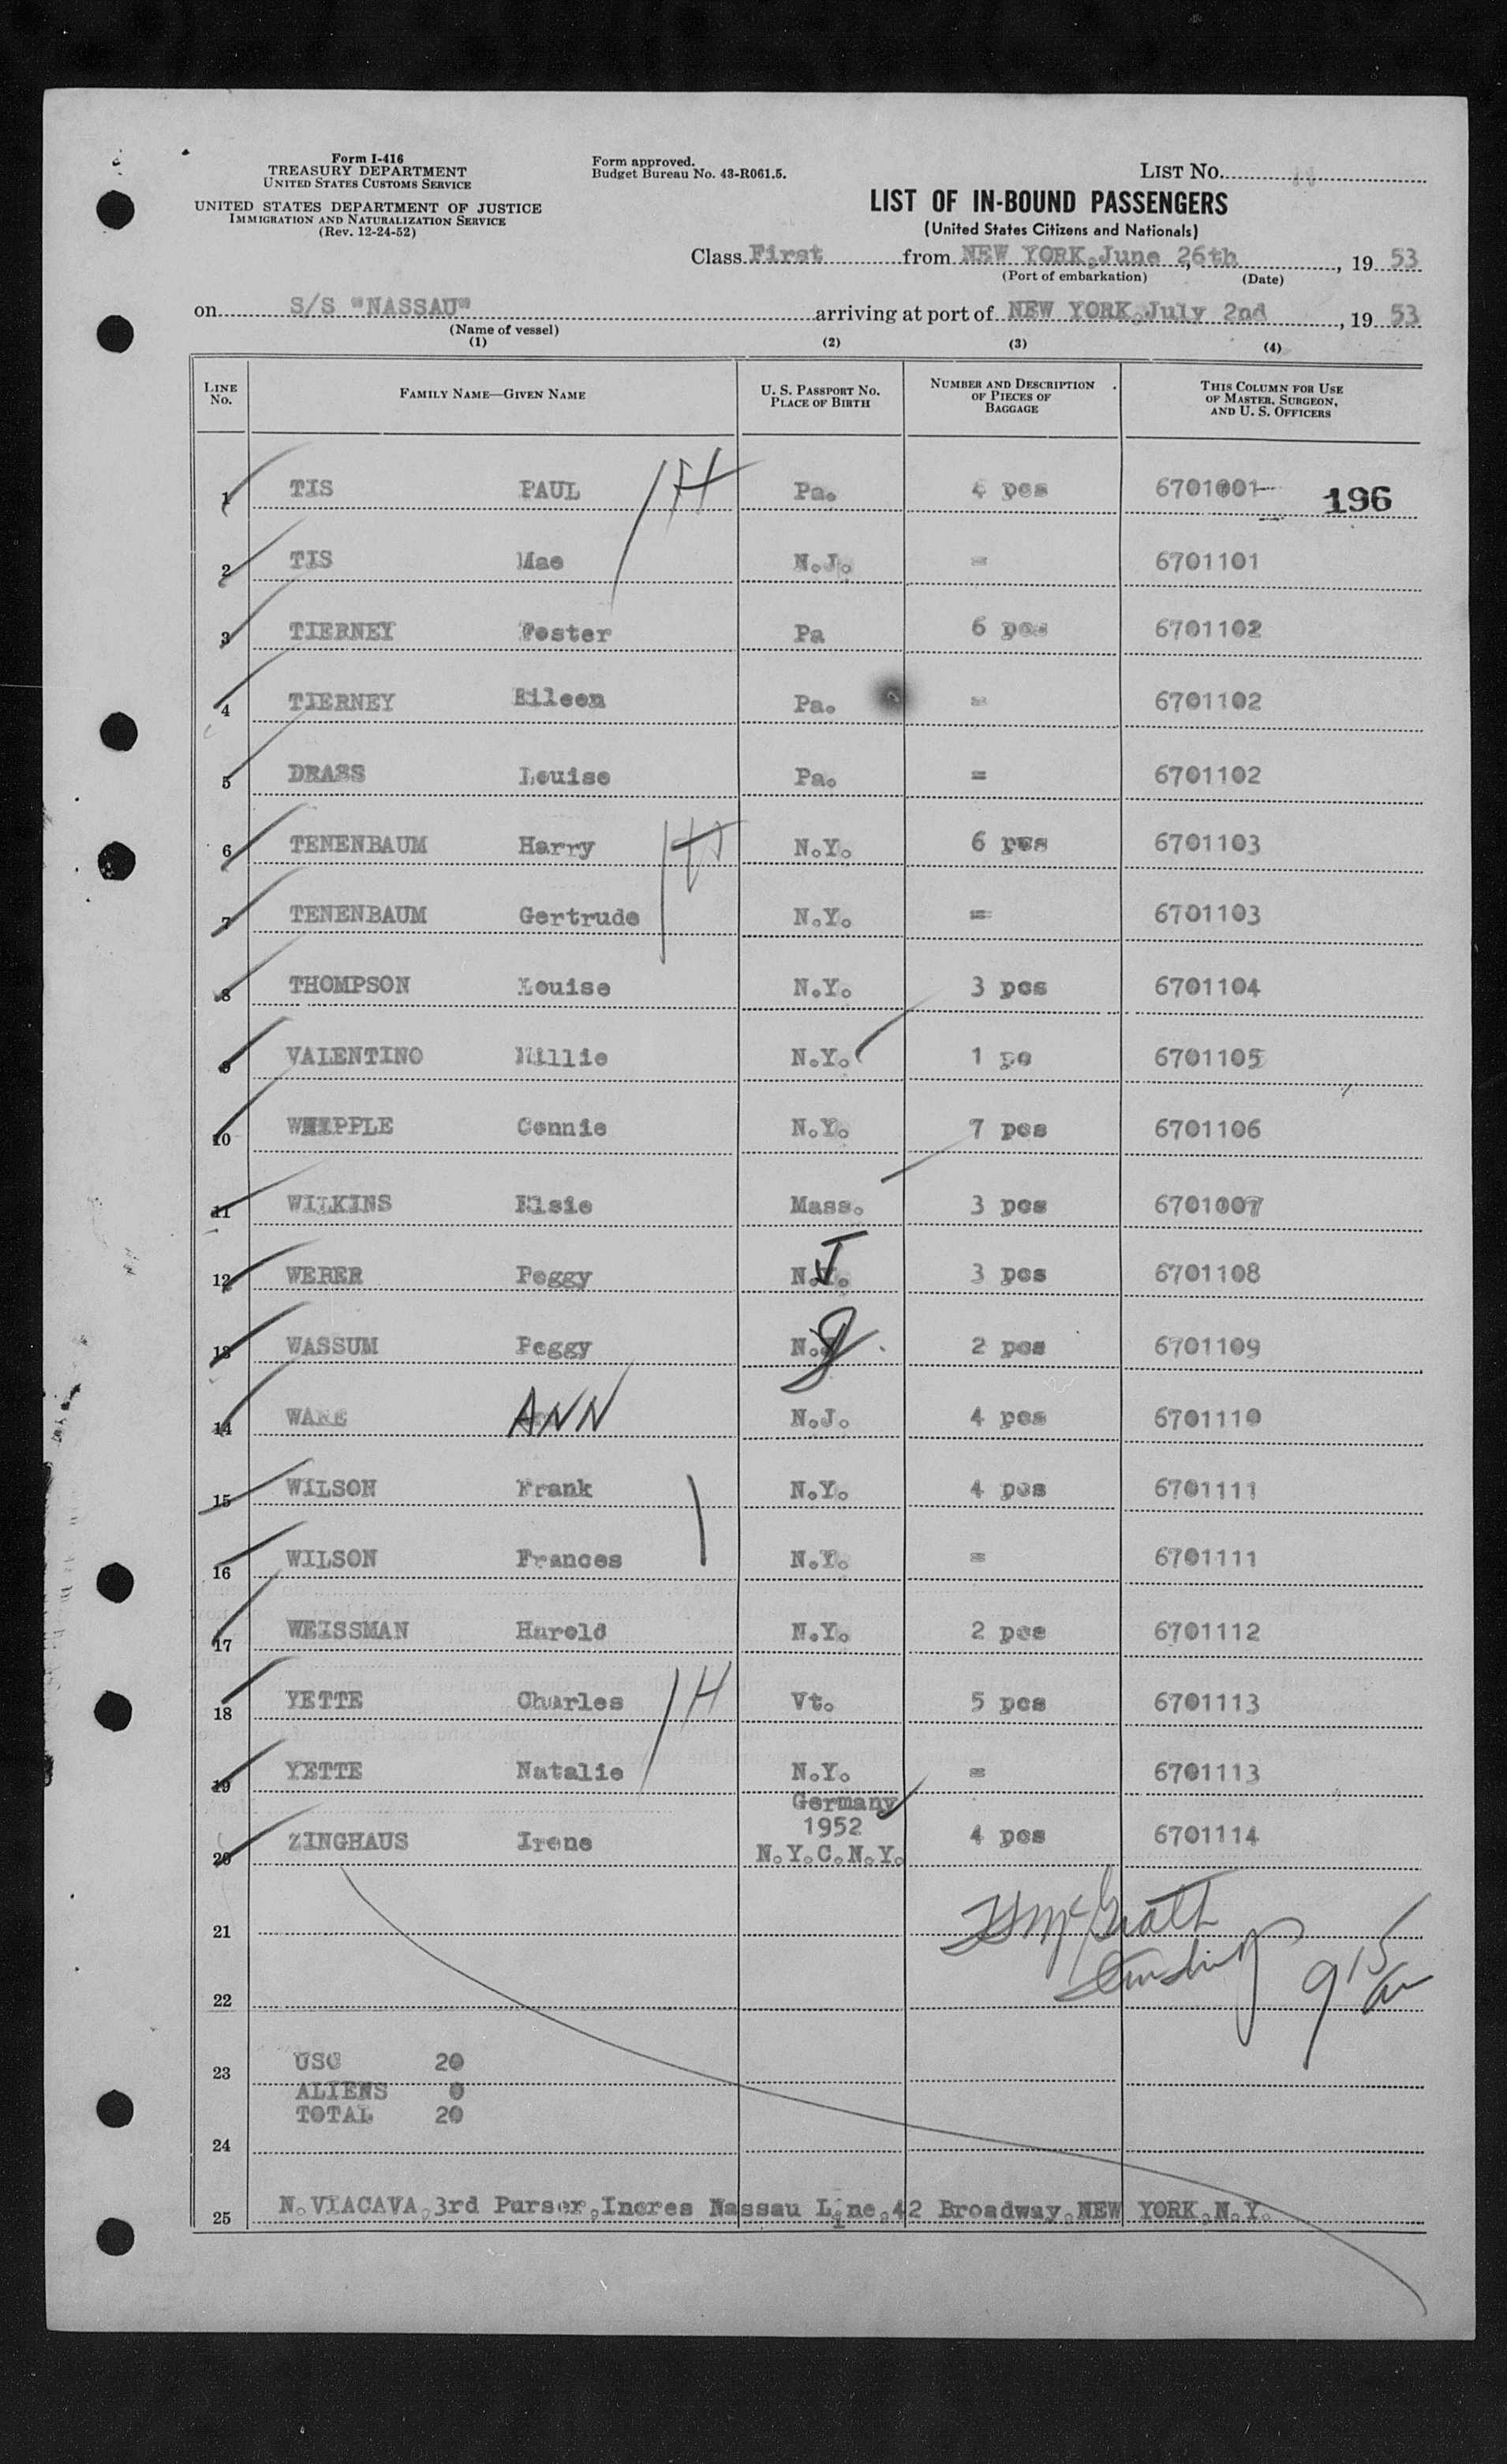 Form I-416
TREASURY DEPARTMENT
UNITED STATES CUSTOMS SERVICE
UNITED STATES DEPARTMENT OF JUSTICE
IMMIGRATION AND NATURALIZATION SERVICE
(Rev. 12-24-52)
Form approved.
Budget Bureau No. 43-R061.5.
LIST No. 11
LIST OF IN-BOUND PASSENGERS
(United States Citizens and Nationals)
Class First from NEW YORK, June 26th, 1953
(Port of embarkation) (Date)
on S/S "NASSAU" arriving at port of NEW YORK, July 2nd, 1953
(Name of vessel)
(1) (2) (3) (4)
LINE No. FAMILY NAME—GIVEN NAME U. S. PASSPORT NO. PLACE OF BIRTH NUMBER AND DESCRIPTION OF PIECES OF BAGGAGE THIS COLUMN FOR USE OF MASTER, SURGEON, AND U. S. OFFICERS
1 TIS PAUL 1H Pa. 4 pcs 6701001 196
2 TIS Mae N.J. = 6701101
3 TIERNEY Foster Pa 6 pcs 6701102
4 TIERNEY Eileen Pa. = 6701102
5 DRASS Louise Pa. = 6701102
6 TENENBAUM Harry N.Y. 6 pcs 6701103
7 TENENBAUM Gertrude N.Y. = 6701103
8 THOMPSON Louise N.Y. 3 pcs 6701104
9 VALENTINO Millie N.Y. 1 pc 6701105
10 WHIPPLE Connie N.Y. 7 pcs 6701106
11 WILKINS Elsie Mass. 3 pcs 6701007
12 WEBER Peggy N.J. 3 pcs 6701108
13 WASSUM Peggy N.J. 2 pcs 6701109
14 WARE ANN N.J. 4 pcs 6701110
15 WILSON Frank N.Y. 4 pcs 6701111
16 WILSON Frances N.Y. = 6701111
17 WEISSMAN Harold N.Y. 2 pcs 6701112
18 YETTE Charles 1H Vt. 5 pcs 6701113
19 YETTE Natalie N.Y. = 6701113
Germany
1952
20 ZINGHAUS Irene N.Y.C.N.Y. 4 pcs 6701114
21 McGrath
22 9 15
23 USC 20
ALIENS 0
TOTAL 20
24
25 N.VIACAVA,3rd Purser,Incres Nassau Line,42 Broadway,NEW YORK,N.Y.